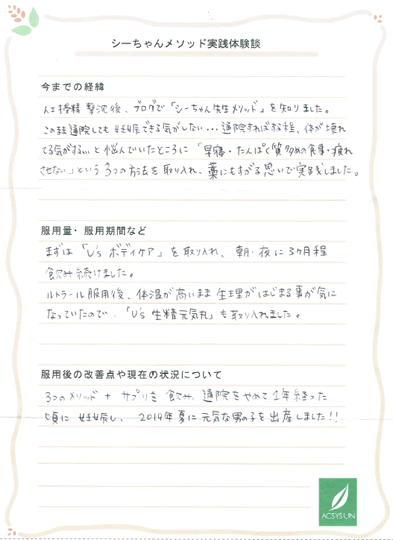 シーちゃんメソッド実践体験談
今までの経緯
人工授精 撃沈後、ブログで「シーちゃん先生メソッド」を知りました。
このまま通院しても妊娠できる気がしない…通院すればする程、体が壊れ
てる気がする…と悩んでいたところに「早寝・たんぱく質多めの食事・疲れ
させない」という3つの方法を取り入れ、藁にもすがる思いで実践しました。
服用量・服用期間など
まずは「U's ボディケア」を取り入れ、朝・夜に3ヶ月程
飲み続けました。
ルトラール服用後、体温が高いまま生理がはじまる事が気に
なっていたので、「U's 生精元気丸」も取り入れました。
服用後の改善点や現在の状況について
3つのメソッド + サプリを飲み、通院をやめて1年経った
頃に妊娠し、2014年夏に元気な男の子を出産しました!!
ACSYSUN